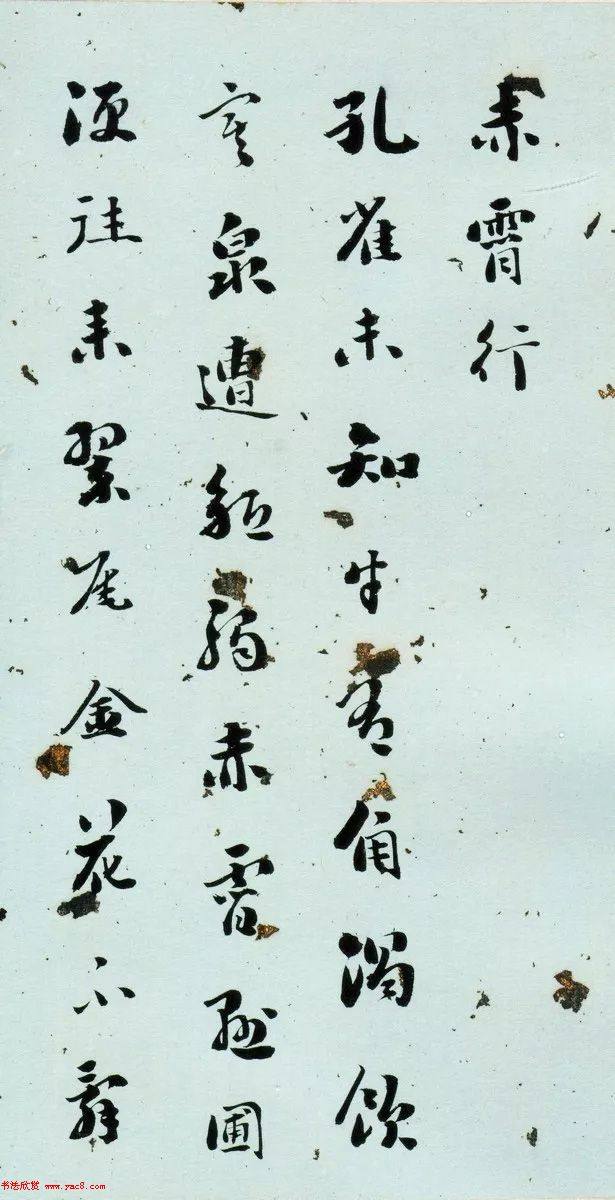 赤霄行
孔雀未知牛有角渴飲
寒泉遭觝觸赤霄懸圃
須往来翠尾金花不辭
书法欣赏 www.yac8.com